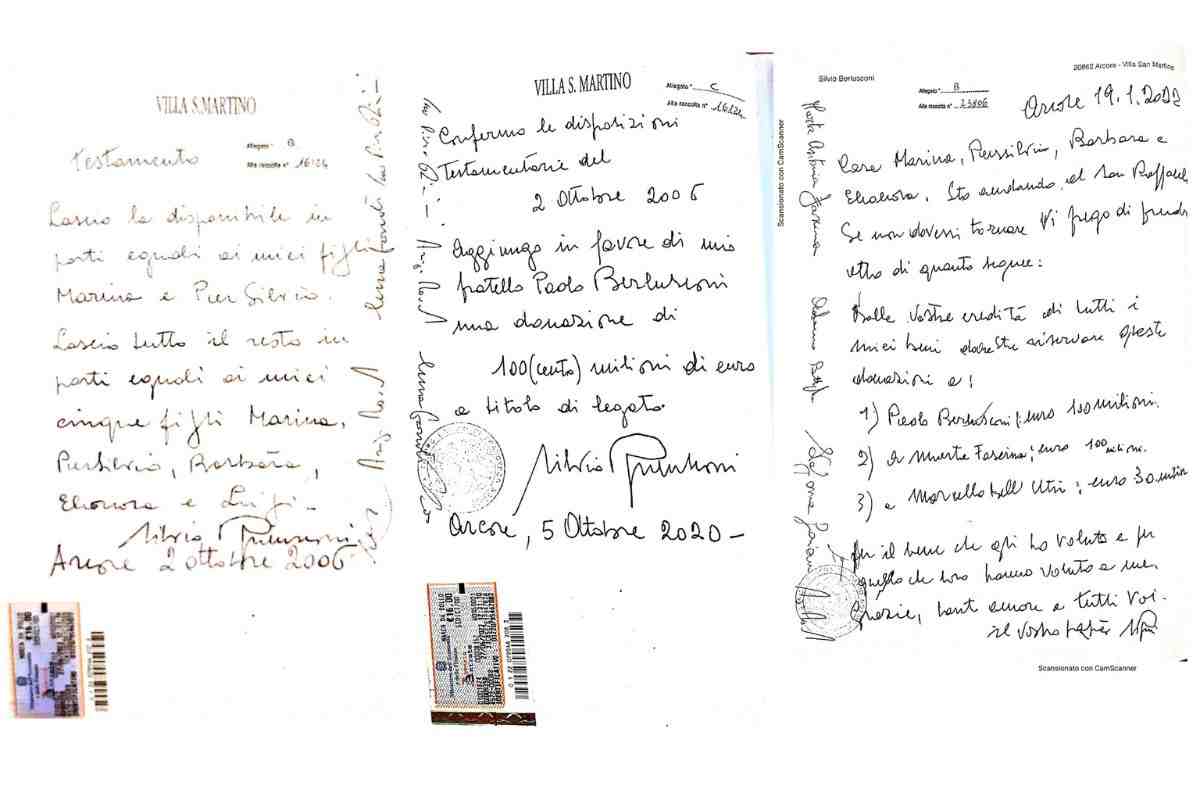 VILLA S. MARTINO
Allegato " B
Alla raccolta n° 16124
Testamento
Lascio la disponibile in
parti eguali ai miei figli
Marina e Pier Silvio.
Lascio tutto il resto in
parti eguali ai miei
cinque figli Marina,
Piersilvio, Barbara,
Eleonora e Luigi.
Silvio Berlusconi
Arcore 2 ottobre 2006
VILLA S. MARTINO
Allegato " C
Alla raccolta n° 16124
Confermo le disposizioni
Testamentarie del
2 Ottobre 2006
Aggiungo in favore di mio
fratello Paolo Berlusconi
una donazione di
100 (cento) milioni di euro
a titolo di legato.
Silvio Berlusconi
Arcore, 5 Ottobre 2020 -
MARCA DA BOLLO
€16,00
Silvio Berlusconi
20862 Arcore - Villa San Martino
Allegato " B
Alla raccolta n° 23806
Arcore 19.1.2022
Cara Marina, Piersilvio, Barbara e
Eleonora, Sto andando al San Raffaele
Se non dovessi tornare Vi prego di prende
atto di quanto segue:
Dalle vostre eredità di tutti i
miei beni dovreste riservare queste
donazioni a:
1) Paolo Berlusconi; euro 100 milioni.
2) a Marta Fascina; euro 100 milioni.
3) a Marcello Dell'Utri; euro 30 milioni
Per il bene che gli ho voluto e per
quello che loro hanno voluto a me.
Grazie, tanto amore a tutti voi.
il vostro papà
Scansionato con CamScanner
Scansionato con CamScanner